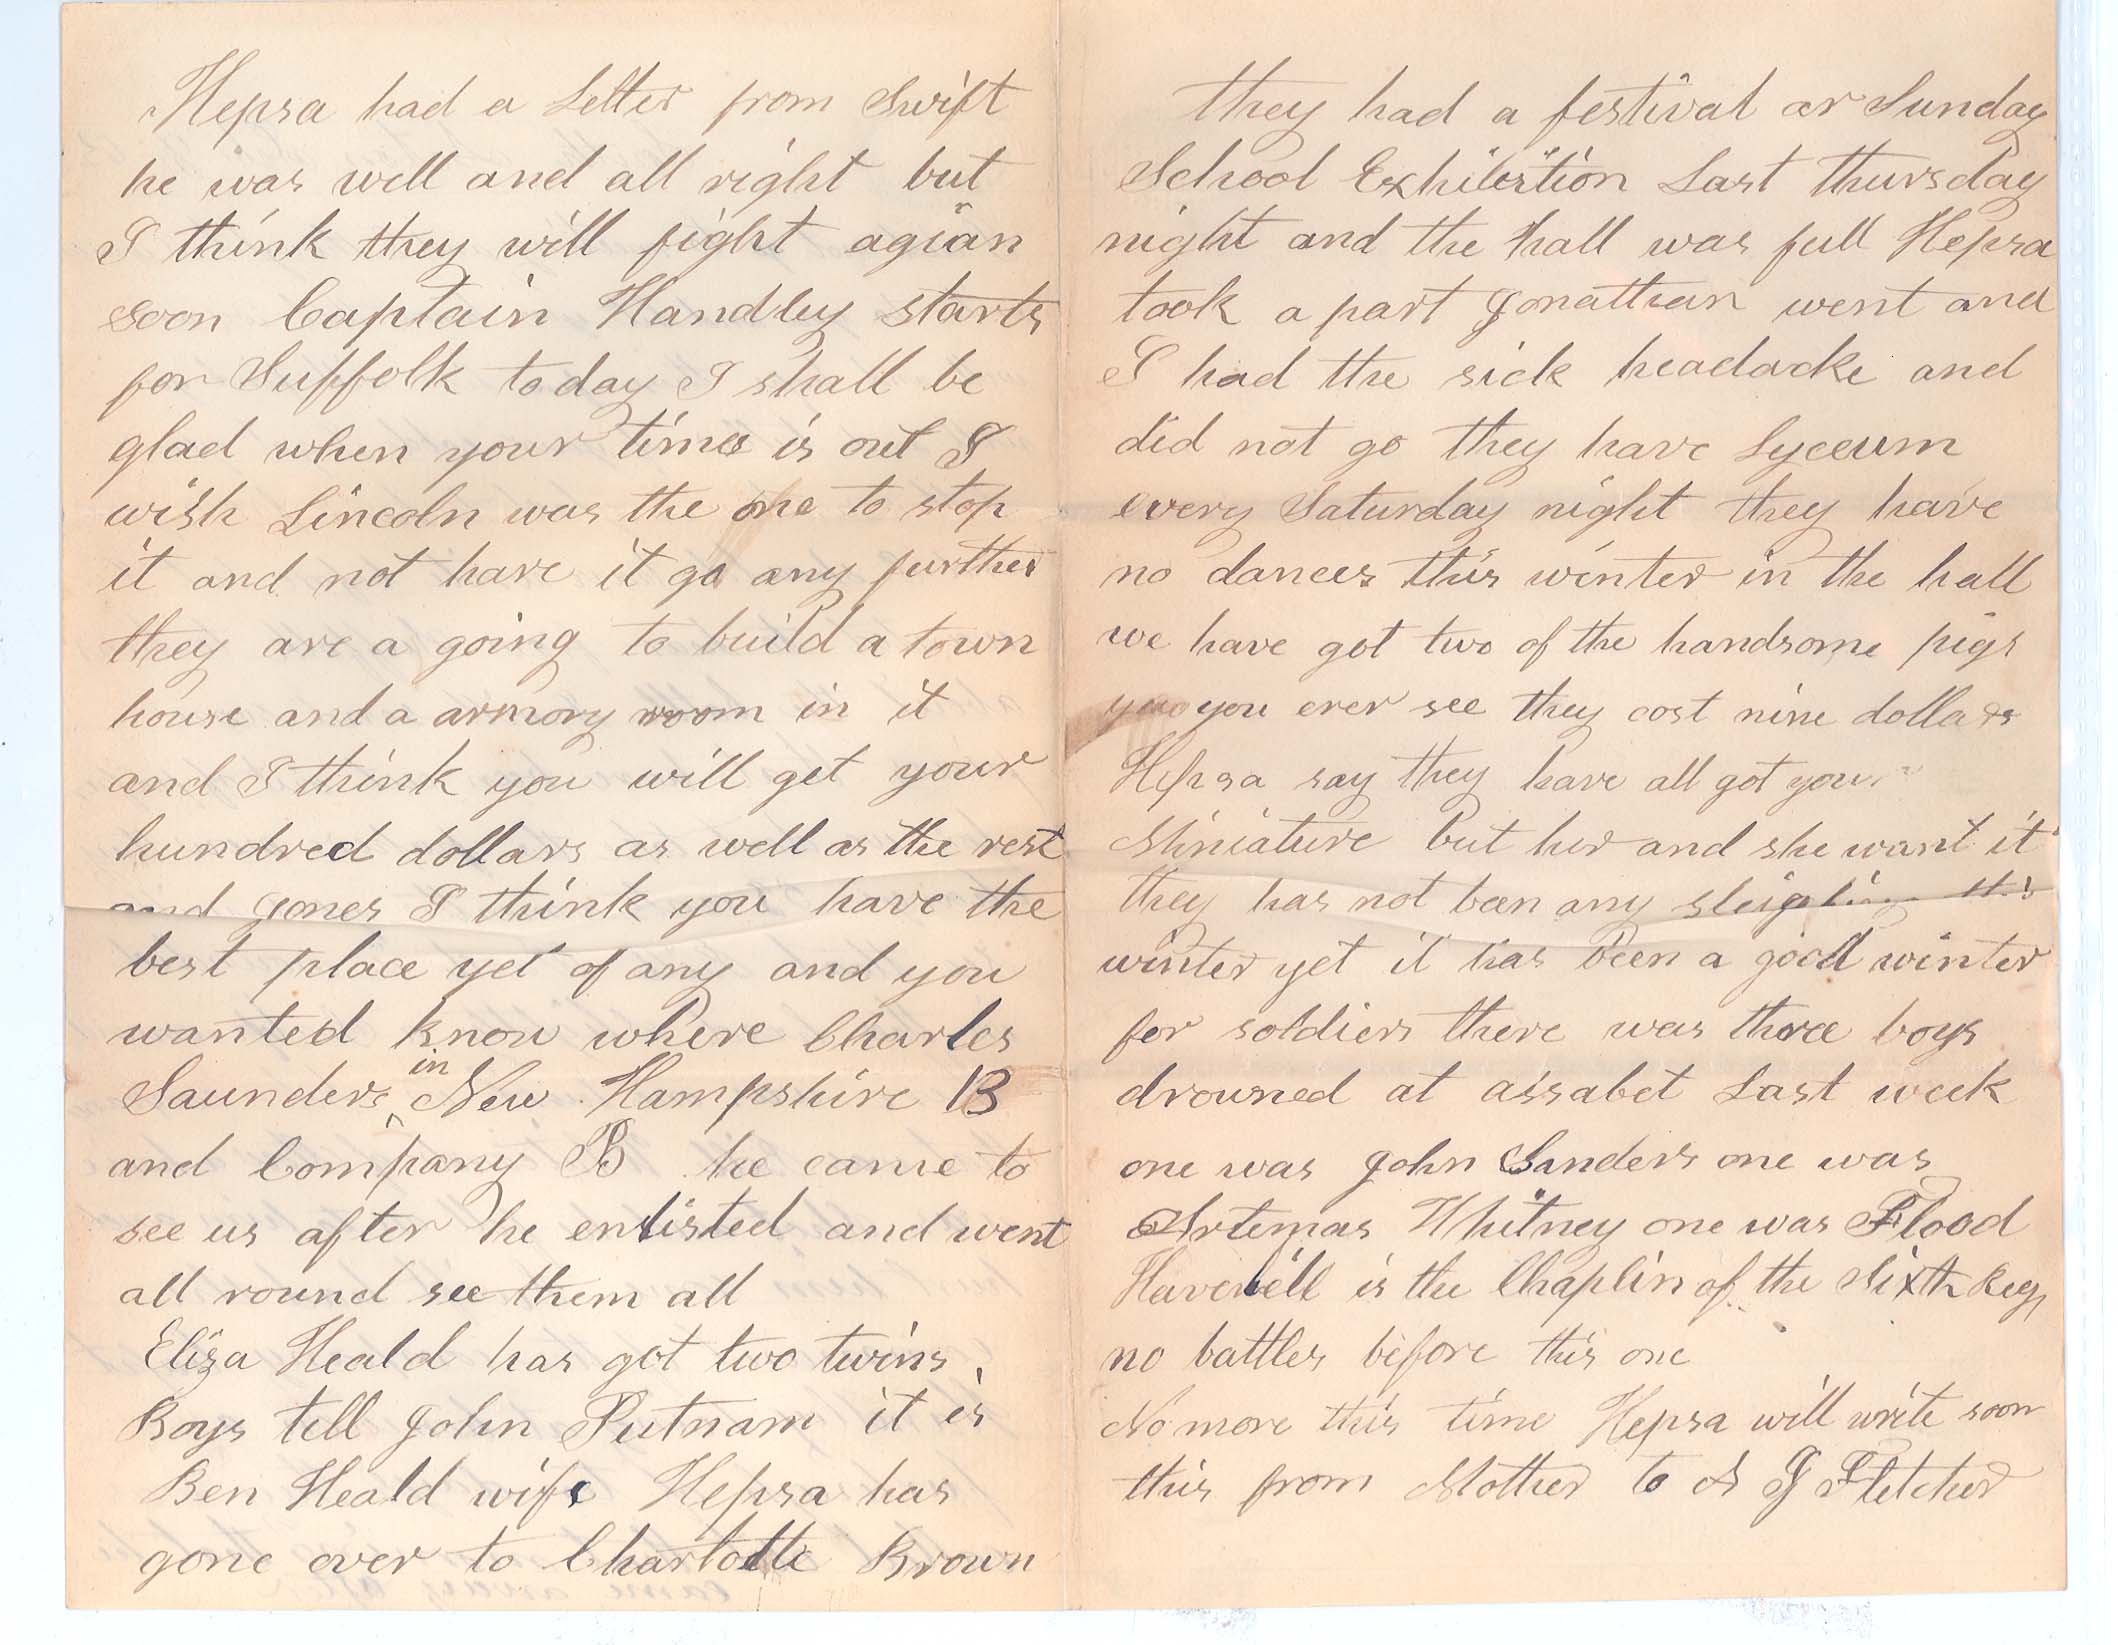 Hepsa had a Letter from Swift
he was well and all right but
I think they will fight agian
soon Captain Handley starts
for Suffolk to day I shall be
glad when your times is out I
wish Lincoln was the one to stop
it and not have it go any further
they are a going to build a town
house and a armory room in it
and I think you will get your
hundred dollars as well as the rest
and Jones I think you have the
best place yet of any and you
wanted know where Charles
Saunders in New Hampshire 13
and Company B he came to
see us after he enlisted and went
all round see them all
Eliza Heald has got two twins
Boys tell John Putnam it is
Ben Heald wife Hepsa has
gone over to Charlotte Brown
they had a festival or Sunday
School Exhibition Last thursday
night and the hall was full Hepsa
took a part Jonathan went and
I had the sick headacke and
did not go they have Lyceum
every Saturday night they have
no dances this winter in the hall
we have got two of the handsome pigs
you ever see they cost nine dollars
Hepsa say they have all got your
Miniature but her and she want it
they has not ben any sleighing this
winter yet it has been a good winter
for soldiers there was three boys
drowned at assabet Last week
one was John Sanders one was
Artemas Whitney one was Flood
Haverwell is the Chaplin of the Sixth Reg
no battles before this one
No more this time Hepsa will write soon
this from Mother to A J Fletcher